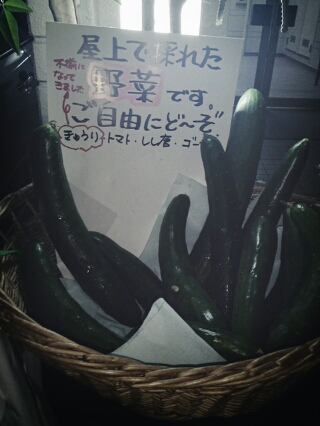 屋上で採れた
不揃に
なって
きました
野菜です。
ご自由にど〜ぞ
きゅうり・トマト・しし唐・ゴー